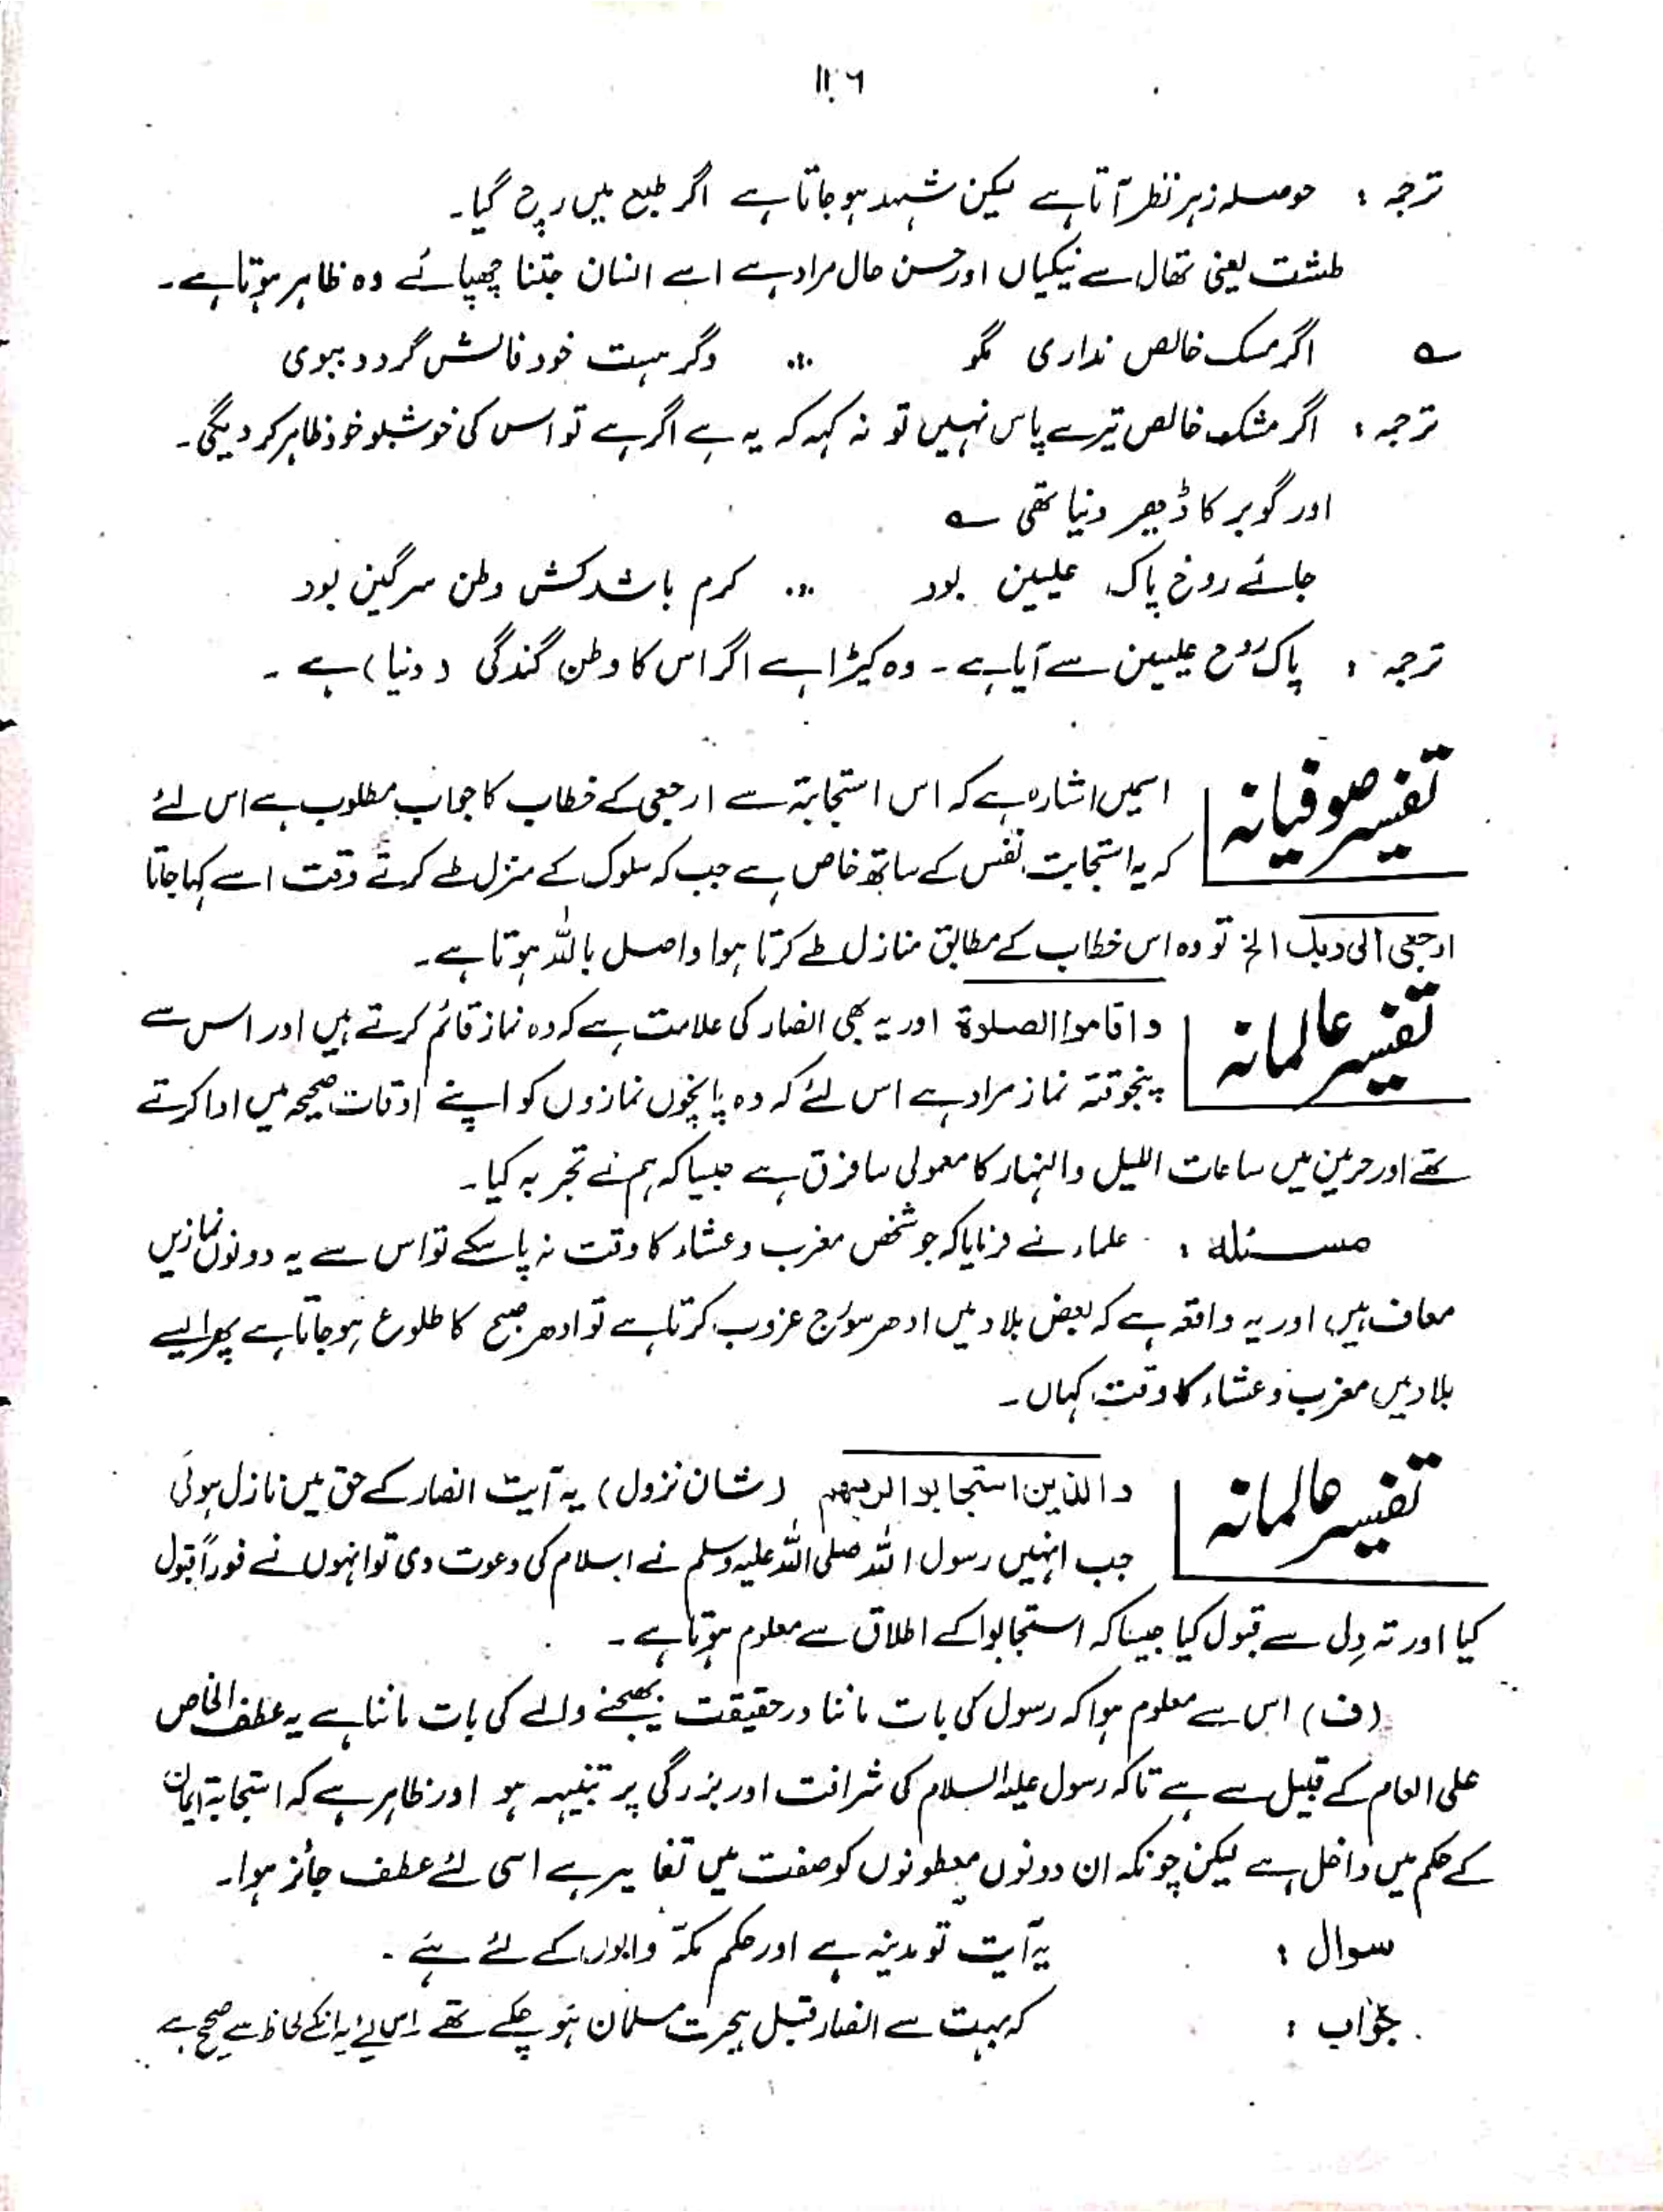 ۱۱۰۶
ترجمہ : حوصلہ زہر نظر آتا ہے لیکن شہد ہو جاتا ہے اگر طبع میں رچ گیا۔
طشت یعنی تھال سے نیکیاں اور حسن حال مراد ہے اسے انسان جتنا چھپائے وہ ظاہر ہوتا ہے۔
؎ اگر مسک خالص نداری مگو ؞ وگر ہست خود فالش گردد ببوی
ترجمہ : اگر مشک خالص تیرے پاس نہیں تو نہ کہہ کہ یہ ہے اگر ہے تو اس کی خوشبو خود ظاہر کر دیگی۔
اور گوبر کا ڈھیر دنیا تھی ؎
جائے روح پاک علیین بود ؞ کرم باشد کش وطن سرگین بود
ترجمہ : پاک روح علیین سے آیا ہے۔ وہ کیڑا ہے اگر اس کا وطن گندگی (دنیا) ہے۔
تفسیر صوفیانہ اسمیں اشارہ ہے کہ اس استجابۃ سے ارجعی کے خطاب کا جواب مطلوب ہے اس لئے
کہ یہ استجابت نفس کے ساتھ خاص ہے جب کہ سلوک کے منزل طے کرتے وقت اسے کہا جاتا
ارجعی الی ربک الخ تو وہ اس خطاب کے مطابق منازل طے کرتا ہوا واصل باللہ ہوتا ہے۔
تفسیر عالمانہ واقاموا الصلوۃ اور یہ بھی انصار کی علامت ہے کہ وہ نماز قائم کرتے ہیں اور اس سے
پنجوقتہ نماز مراد ہے اس لئے کہ وہ پانچوں نمازوں کو اپنے اوقات صحیحہ میں ادا کرتے
تھے اور حرمین میں ساعات اللیل والنہار کا معمولی سا فرق ہے جیسا کہ ہم نے تجربہ کیا۔
مسئلہ : علماء نے فرمایا کہ جو شخص مغرب و عشاء کا وقت نہ پا سکے تو اس سے یہ دونوں نمازیں
معاف ہیں اور یہ واقعہ ہے کہ بعض بلاد میں ادھر سورج غروب کرتا ہے تو ادھر صبح کا طلوع ہو جاتا ہے پھر ایسے
بلاد میں مغرب و عشاء کا وقت کہاں۔
تفسیر عالمانہ والذین استجابوا لربھم (شان نزول) یہ آیت انصار کے حق میں نازل ہوئی
جب انہیں رسول اللہ صلی اللہ علیہ وسلم نے اسلام کی دعوت دی تو انہوں نے فوراً قبول
کیا اور تہ دل سے قبول کیا جیسا کہ استجابوا کے اطلاق سے معلوم ہوتا ہے۔
(ف) اس سے معلوم ہوا کہ رسول کی بات ماننا درحقیقت بھیجنے والے کی بات ماننا ہے یہ عطف الخاص
علی العام کے قبیل سے ہے تاکہ رسول علیہ السلام کی شرافت اور بزرگی پر تنبیہہ ہو اور ظاہر ہے کہ استجابۃ ایمان
کے حکم میں داخل ہے لیکن چونکہ ان دونوں معطوفوں کو صفت میں تغایر ہے اسی لئے عطف جائز ہوا۔
سوال : یہ آیت تو مدنیہ ہے اور حکم مکہ والوں کے لئے ہے۔
جواب : کہ بہت سے انصار قبل ہجرت مسلمان ہو چکے تھے اس لئے یہ انکے لحاظ سے صحیح ہے